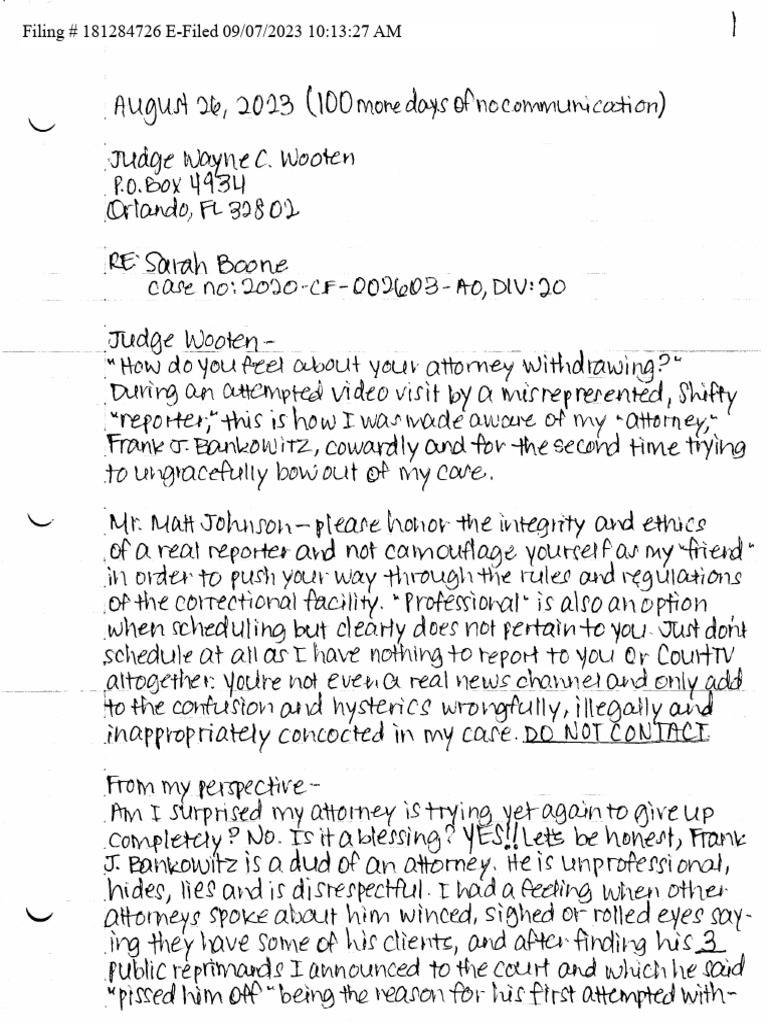 Filing # 181284726 E-Filed 09/07/2023 10:13:27 AM
1
August 26, 2023 (100 more days of no communication)
Judge Wayne C. Wooten
P.O. Box 4934
Orlando, FL 32802
RE: Sarah Boone
case no: 2020-CF-002603-AO, DIV: 20
Judge Wooten-
"How do you feel about your attorney withdrawing?"
During an attempted video visit by a misrepresented, shifty
"reporter," this is how I was made aware of my "attorney,"
Frank J. Bankowitz, cowardly and for the second time trying
to ungracefully bow out of my case.
Mr. Matt Johnson- please honor the integrity and ethics
of a real reporter and not camouflage yourself as my "friend"
in order to push your way through the rules and regulations
of the correctional facility. "Professional" is also an option
when scheduling but clearly does not pertain to you. Just don't
schedule at all as I have nothing to report to you or CourtTV
altogether. You're not even a real news channel and only add
to the confusion and hysterics wrongfully, illegally and
inappropriately concocted in my case. DO NOT CONTACT
From my perspective-
Am I surprised my attorney is trying yet again to give up
completely? No. Is it a blessing? YES!! Let's be honest, Frank
J. Bankowitz is a dud of an attorney. He is unprofessional,
hides, lies and is disrespectful. I had a feeling when other
attorneys spoke about him winced, sighed or rolled eyes say-
ing they have some of his clients, and after finding his 3
public reprimands I announced to the court and which he said
"pissed him off" being the reason for his first attempted with-